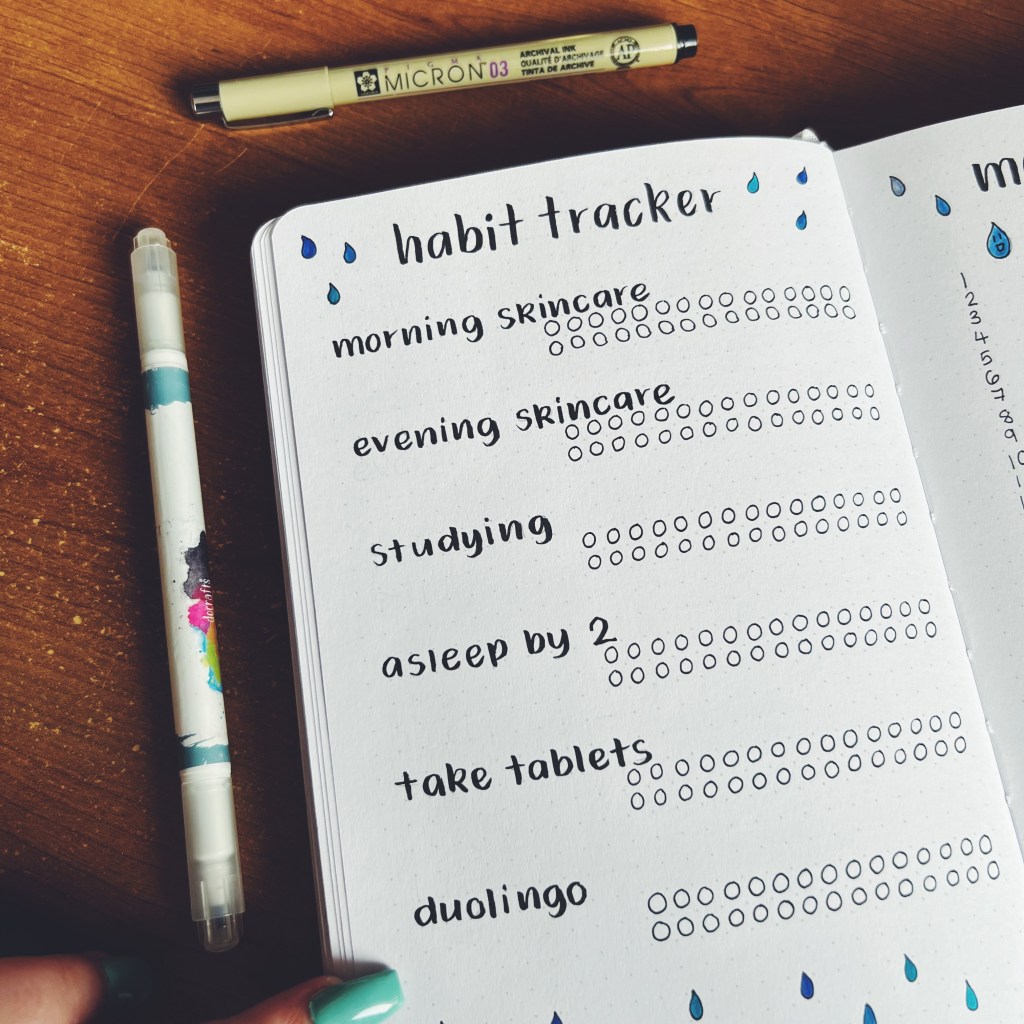 SIGMA
MICRON 03
ARCHIVAL INK
QUALITÉ D'ARCHIVAGE
TINTA DE ARCHIVE
AP
docrafts
habit tracker
morning skincare
evening skincare
studying
asleep by 2
take tablets
duolingo
1
2
3
4
5
6
7
8
9
10